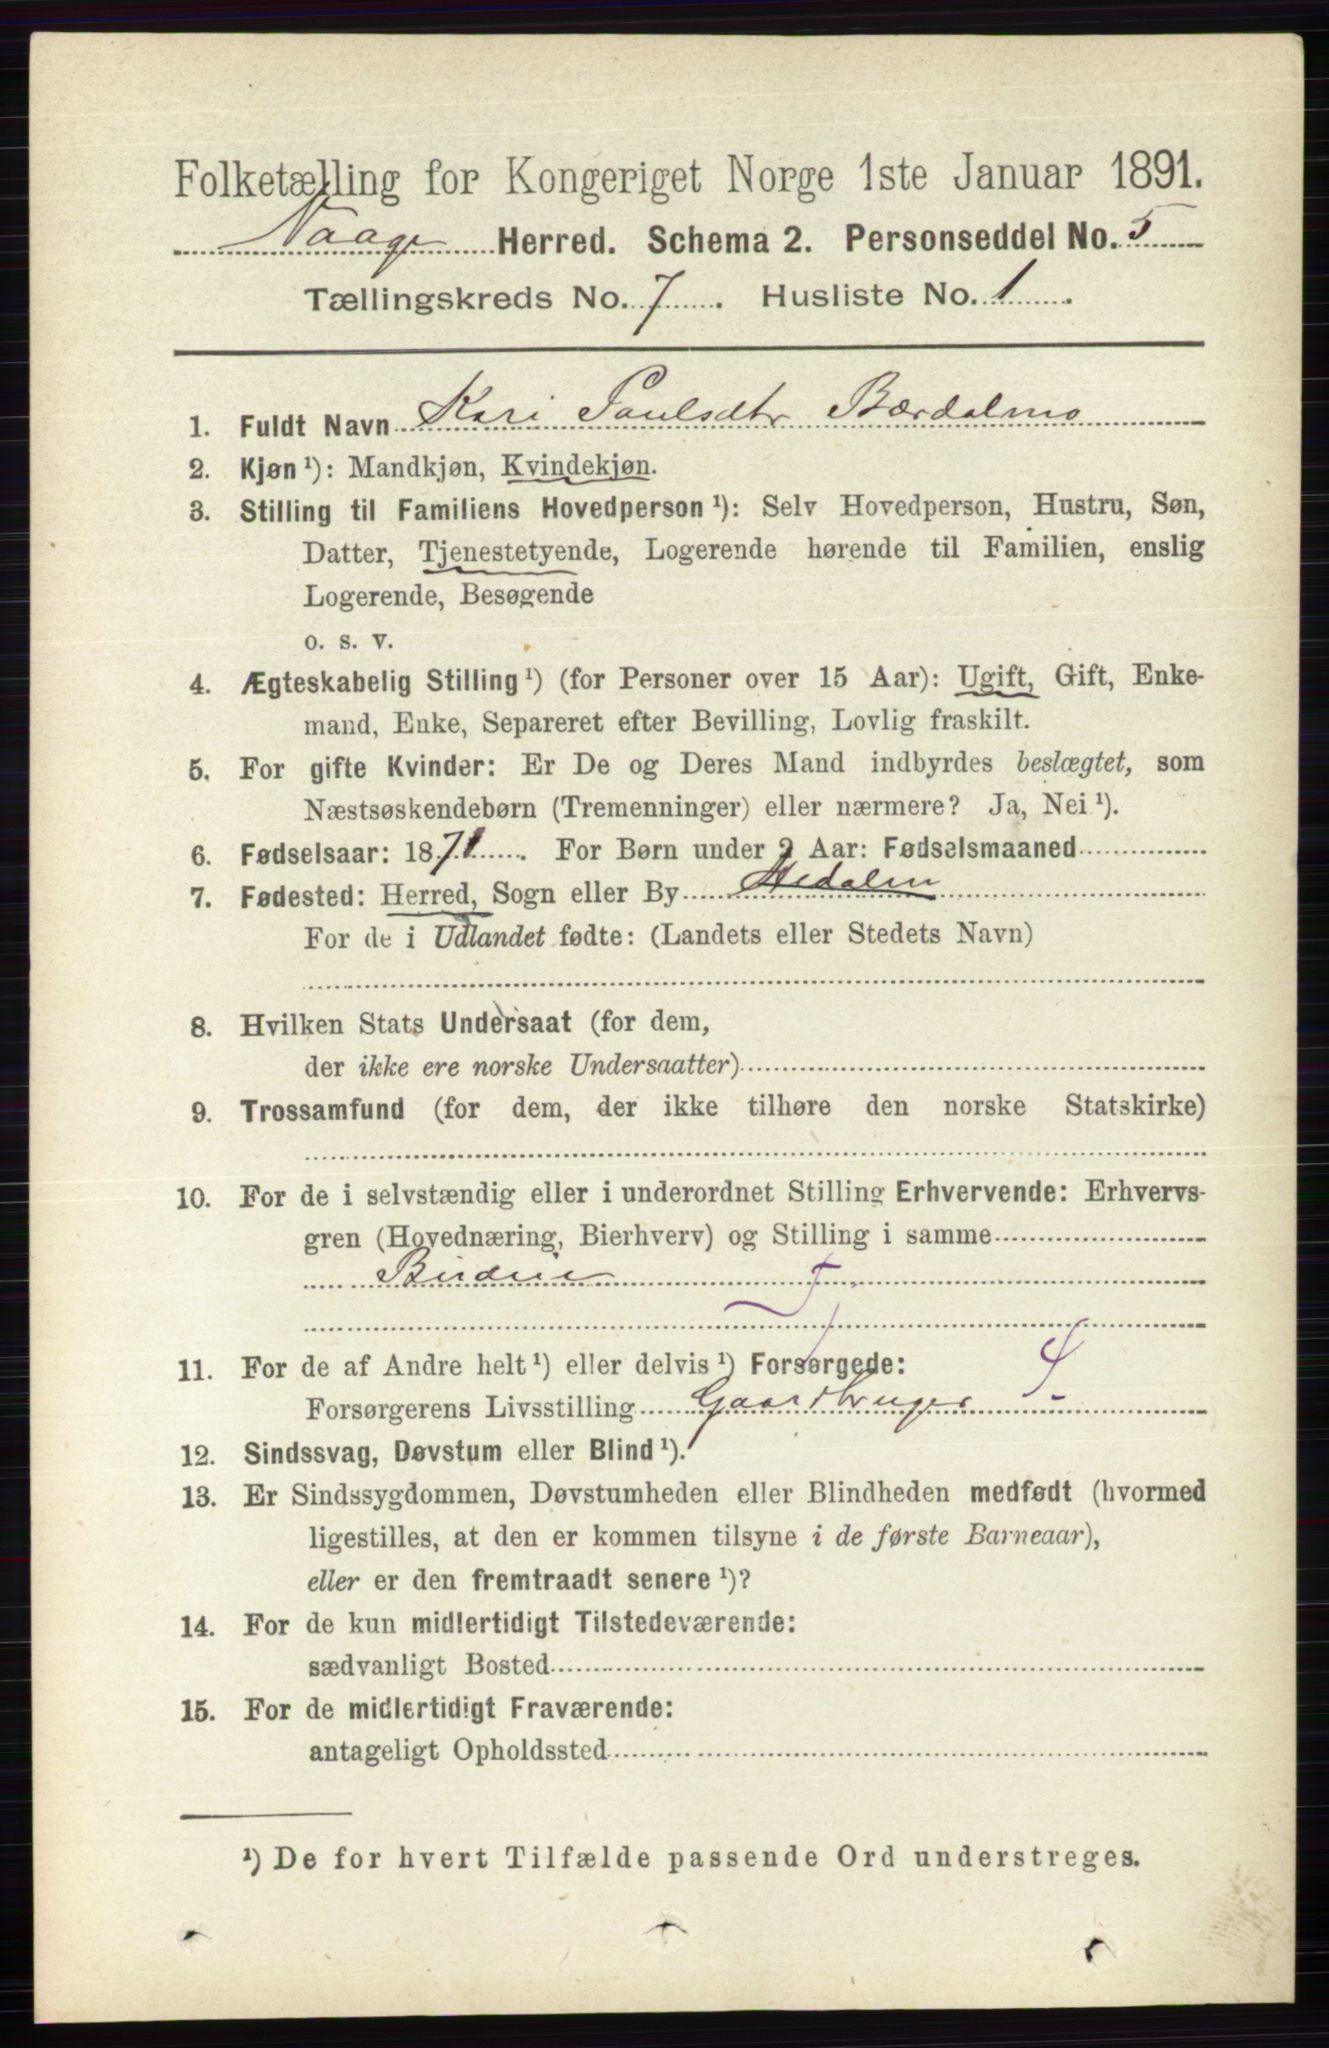 Folketælling for Kongeriget Norge 1ste Januar 1891.
Vaage Herred. Schema 2. Personseddel No. 5
Tællingskreds No. 7. Husliste No. 1.
1. Fuldt Navn Kari Paulsdtr Bærdalmo
2. Kjøn ¹): Mandkjøn, Kvindekjøn.
3. Stilling til Familiens Hovedperson ¹): Selv Hovedperson, Hustru, Søn,
Datter, Tjenestetyende, Logerende hørende til Familien, enslig
Logerende, Besøgende
o. s. v.
4. Ægteskabelig Stilling ¹) (for Personer over 15 Aar): Ugift, Gift, Enke-
mand, Enke, Separeret efter Bevilling, Lovlig fraskilt.
5. For gifte Kvinder: Er De og Deres Mand indbyrdes beslægtet, som
Næstsøskendebørn (Tremenninger) eller nærmere? Ja, Nei ¹).
6. Fødselsaar: 1871. For Børn under 2 Aar: Fødselsmaaned
7. Fødested: Herred, Sogn eller By Hedalen
For de i Udlandet fødte: (Landets eller Stedets Navn)
8. Hvilken Stats Undersaat (for dem,
der ikke ere norske Undersaatter)
9. Trossamfund (for dem, der ikke tilhøre den norske Statskirke)
10. For de i selvstændig eller i underordnet Stilling Erhvervende: Erhvervs-
gren (Hovednæring, Bierhverv) og Stilling i samme
Budeie
11. For de af Andre helt ¹) eller delvis ¹) Forsørgede:
Forsørgerens Livsstilling Gaardbruger
12. Sindssvag, Døvstum eller Blind ¹).
13. Er Sindssygdommen, Døvstumheden eller Blindheden medfødt (hvormed
ligestilles, at den er kommen tilsyne i de første Barneaar),
eller er den fremtraadt senere ¹)?
14. For de kun midlertidigt Tilstedeværende:
sædvanligt Bosted
15. For de midlertidigt Fraværende:
antageligt Opholdssted
¹) De for hvert Tilfælde passende Ord understreges.